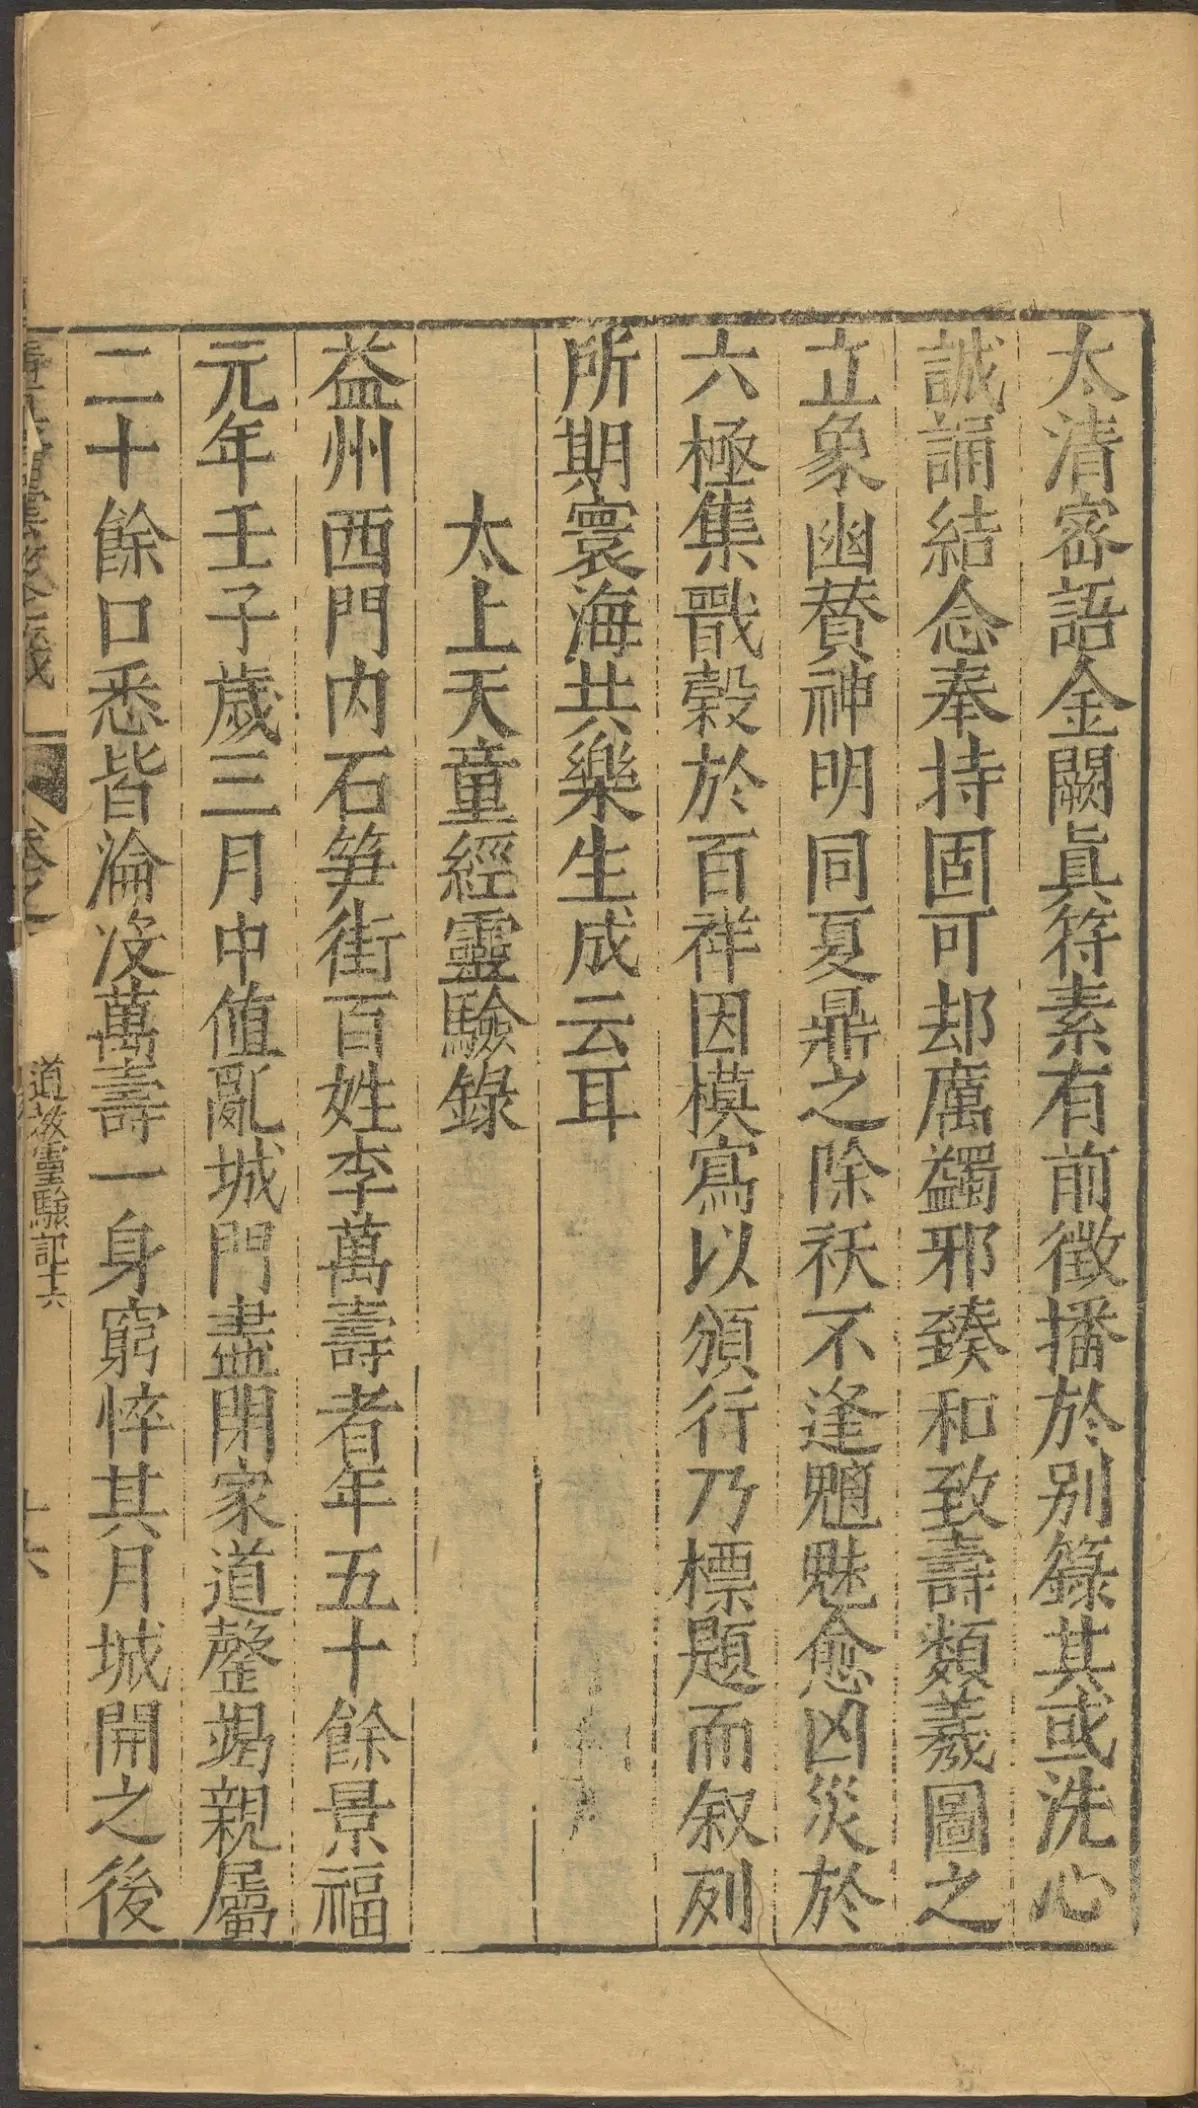 太清密語金闕眞符素有前徵播於別籙其或洗心
誠誦結念奉持固可却厲蠲邪臻和致壽類羲圖之
立象幽賛神明同夏鼎之除祅不逢魑魅愈凶災於
六極集戩榖於百祥因模寫以頒行乃標題而叙列
所期寰海共樂生成云耳
太上天童經靈驗錄
益州西門内石笋街百姓李萬壽者年五十餘景福
元年壬子歲三月中値亂城門盡閉家道罄竭親屬
二十餘口悉皆淪沒萬壽一身窮悴其月城開之後
卷之
道教靈驗記十六
十六